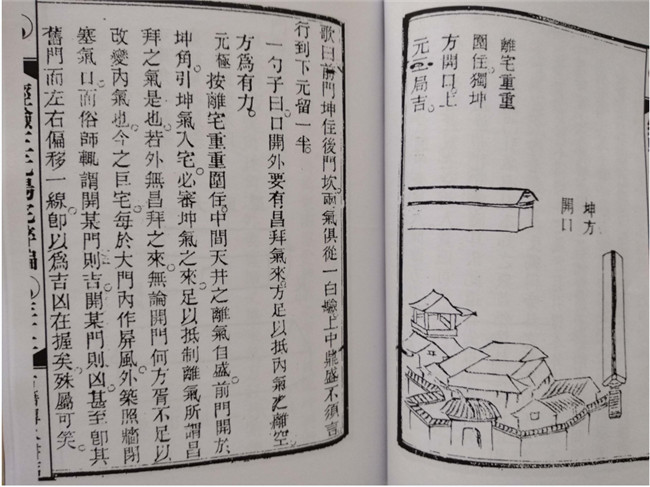 離宅重重
圍住獨坤
方開口上
元二局吉。
坤方
開口
歌曰前門坤住後門坎。兩氣俱從一白驗上中鼎盛不須言
行到下元留一半。
一勺子曰。口開外要有昌拜氣來。方足以抵內氣之離空
方為有力。
元極按離宅重重圍住。中間天井之離氣自盛前門開於
坤角引坤氣入宅必審坤氣之來。足以抵制離氣所謂昌
拜之氣是也。若外無昌拜之來。無論開門何方胥不足以
改變內氣也。今之巨宅每於大門內作屏風外築照牆閉
塞氣口。而俗師輒謂開某門則吉開某門則凶甚至卽其
舊門而左右偏移一線卽以為吉凶在握矣。殊屬可笑。
三元